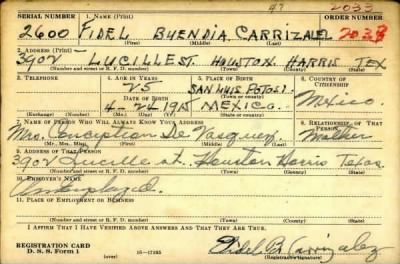 47 2033
SERIAL NUMBER 1. NAME (Print) ORDER NUMBER
2600 FIDEL BUENDIA CARRIZALEZ 2033
(First) (Middle) (Last)
2. ADDRESS (Print)
3902 - LUCILLE ST. HOUSTON. HARRIS TEX
(Number and street or R. F. D. number) (Town) (County) (State)
3. TELEPHONE 4. AGE IN YEARS 5. PLACE OF BIRTH 6. COUNTRY OF CITIZENSHIP
25 SAN LUIS POTOSI.
DATE OF BIRTH (Town or county)
4-24-1915 MEXICO. Mexico.
(Exchange) (Number) (Mo.) (Day) (Yr.) (State or country)
7. NAME OF PERSON WHO WILL ALWAYS KNOW YOUR ADDRESS 8. RELATIONSHIP OF THAT PERSON
Mrs. Conception De Vasquez. Mother
(Mr., Mrs., Miss) (First) (Middle) (Last)
9. ADDRESS OF THAT PERSON
3902 Lucille st. Houston Harris Texas.
(Number and street or R. F. D. number) (Town) (County) (State)
10. EMPLOYER'S NAME
Unemployed.
11. PLACE OF EMPLOYMENT OR BUSINESS
(Number and street or R. F. D. number) (Town) (County) (State)
I AFFIRM THAT I HAVE VERIFIED ABOVE ANSWERS AND THAT THEY ARE TRUE.
REGISTRATION CARD
D. S. S. Form 1 (over) 16-17105 Fidel B. Carrizalez
(Registrant's signature)